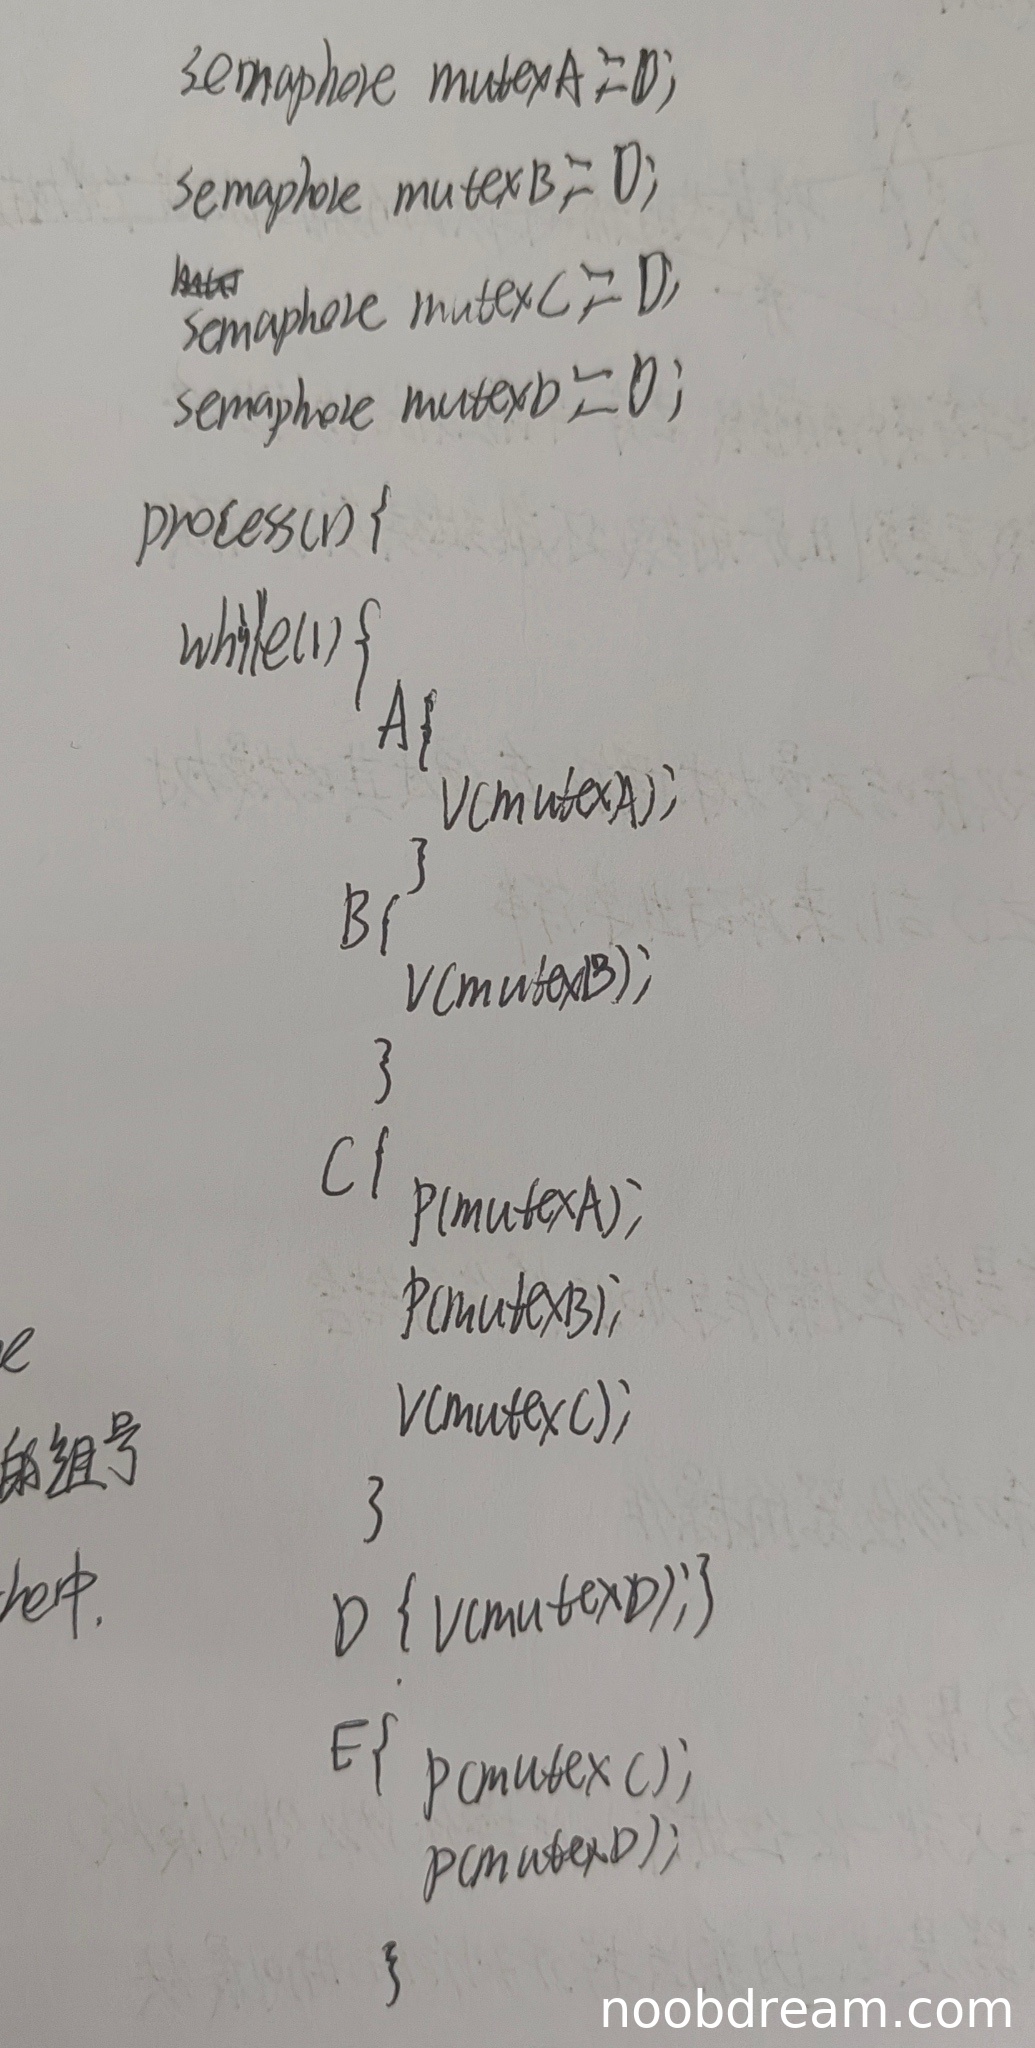 semaphore mutexA = 0;
semaphore mutexB = 0;
semaphore mutexC = 0;
semaphore mutexD = 0;
process(1) {
while(1) {
A {
V(mutexA);
}
B {
V(mutexB);
}
C {
P(mutexA);
P(mutexB);
V(mutexC);
}
D { V(mutexD); }
E { P(mutexC);
P(mutexD);
}
的组号
her中.
noobdream.com